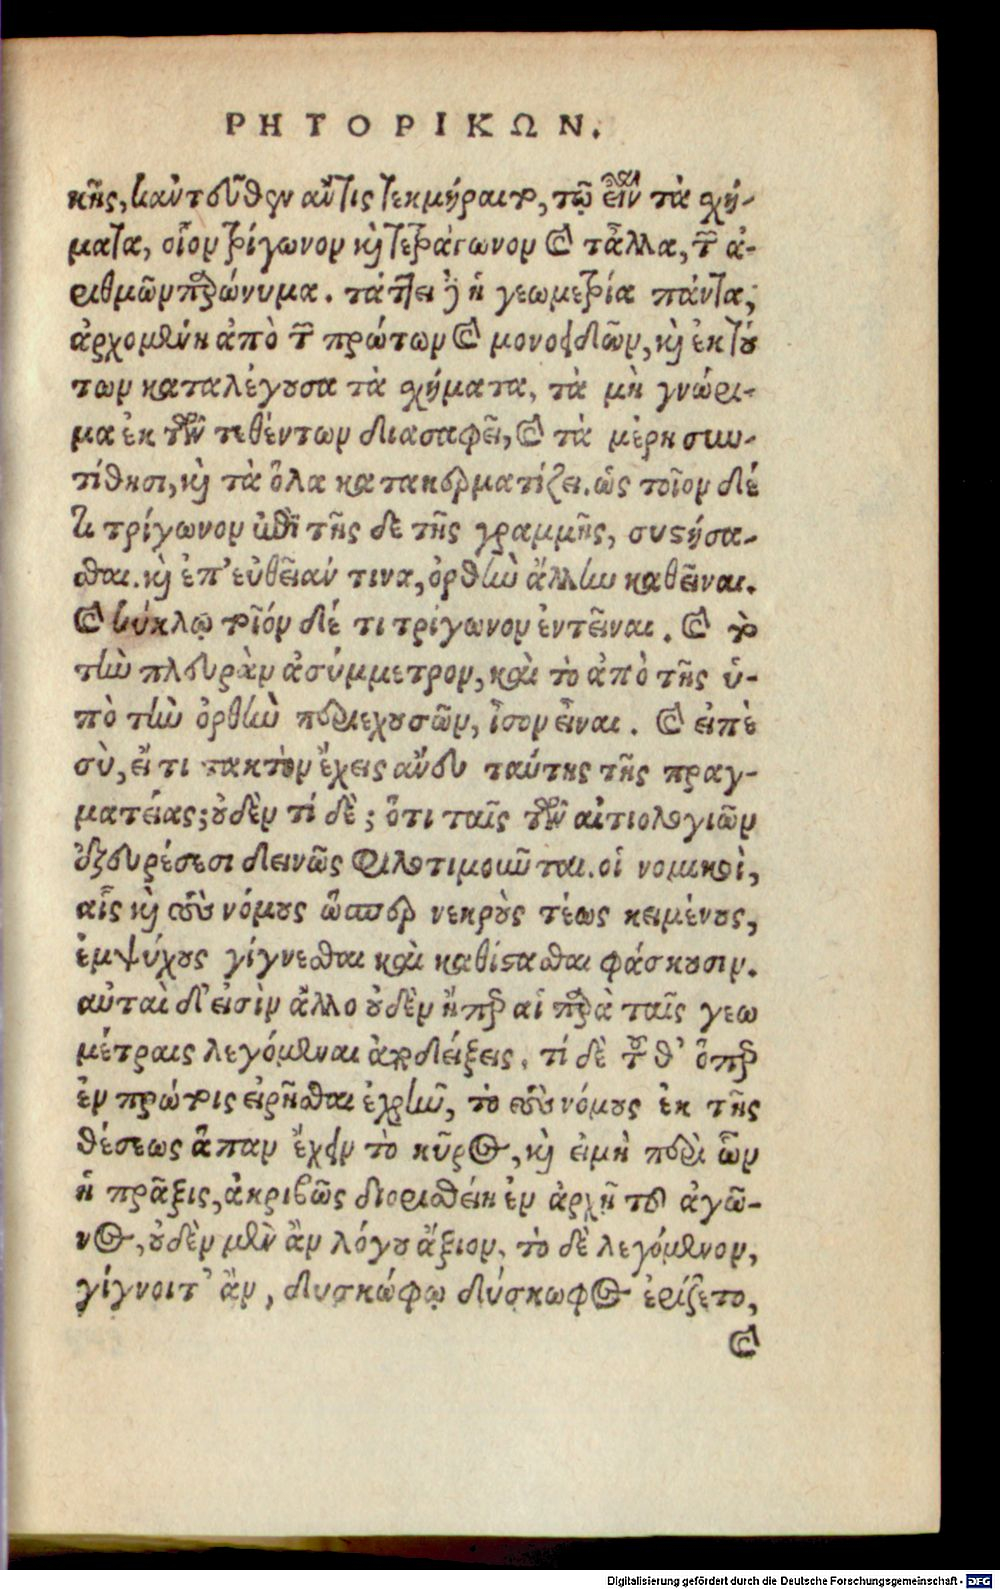 ΡΗΤΟΡΙΚΩΝ.
κῆς, κἀντεῦθεν αὖτις τεκμήραιτο, τῷ εἶναι τὰ σχή-
ματα, οἷον τρίγωνον καὶ τετράγωνον καὶ τἆλλα, τῶν ἀ-
ριθμῶν παρώνυμα. τάττει δὲ ἡ γεωμετρία πάντα,
ἀρχομένη ἀπὸ τῶν πρώτων καὶ μονοειδῶν, καὶ ἐκ τού
των καταλέγουσα τὰ σχήματα, τὰ μὴ γνώρι-
μα ἐκ τῶν τεθέντων διασαφεῖ, καὶ τὰ μέρη συν-
τίθησι, καὶ τὰ ὅλα κατακερματίζει. ὡς τοῖον δέ
τι τρίγωνον ἐπὶ τῆς δε τῆς γραμμῆς, συστήσα-
σθαι. καὶ ἐπ' εὐθεῖάν τινα, ὀρθὴν ἄλλην καθεῖναι.
καὶ κύκλῳ τοῖόν δέ τι τρίγωνον ἐντεῖναι. καὶ τὸ
τὴν πλευρὰν ἀσύμμετρον, καὶ τὸ ἀπὸ τῆς ὑ-
πὸ τὴν ὀρθὴν περιεχουσῶν, ἴσον εἶναι. καὶ εἰπὲ
σὺ, εἴ τι τακτὸν ἔχεις ἄνευ ταύτης τῆς πραγ-
ματείας; οὐδὲν τί δὲ; ὅτι ταῖς τῶν αἰτιολογιῶν
ἐξευρέσεσι δεινῶς φιλοτιμοῦνται. οἱ νομικοὶ,
αἷς καὶ τοὺς νόμους ὥσπερ νεκροὺς τέως κειμένους,
ἐμψύχους γίγνεσθαι καὶ καθίστασθαι φάσκουσιν.
αὗται δ' εἰσὶν ἄλλο οὐδὲν ἤπερ αἱ παρὰ ταῖς γεω
μέτραις λεγόμεναι ἀποδείξεις. τί δὲ τοῦθ' ὅπερ
ἐν πρώτοις εἰρῆσθαι ἐχρῆν, τὸ τοὺς νόμους ἐκ τῆς
θέσεως ἅπαν ἔχειν τὸ κῦρος, καὶ εἰμὴ περὶ ὧν
ἡ πρᾶξις, ἀκριβῶς διορισθείη ἐν ἀρχῇ τοῦ ἀγῶ-
νος, οὐδὲν μὲν ἂν λόγου ἄξιον, τὸ δὲ λεγόμενον,
γίγνοιτ' ἂν, δυσκώφῳ δύσκωφος ἐρίζετο,
καὶ
Digitalisierung gefördert durch die Deutsche Forschungsgemeinschaft - DFG